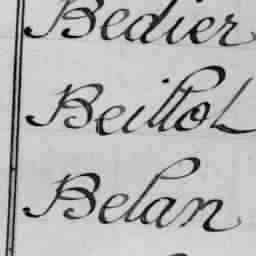 Bedier
Beillot
Belan